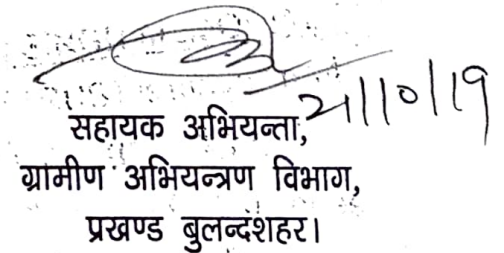 21/10/19
सहायक अभियन्ता,
ग्रामीण अभियन्त्रण विभाग,
प्रखण्ड बुलन्दशहर।